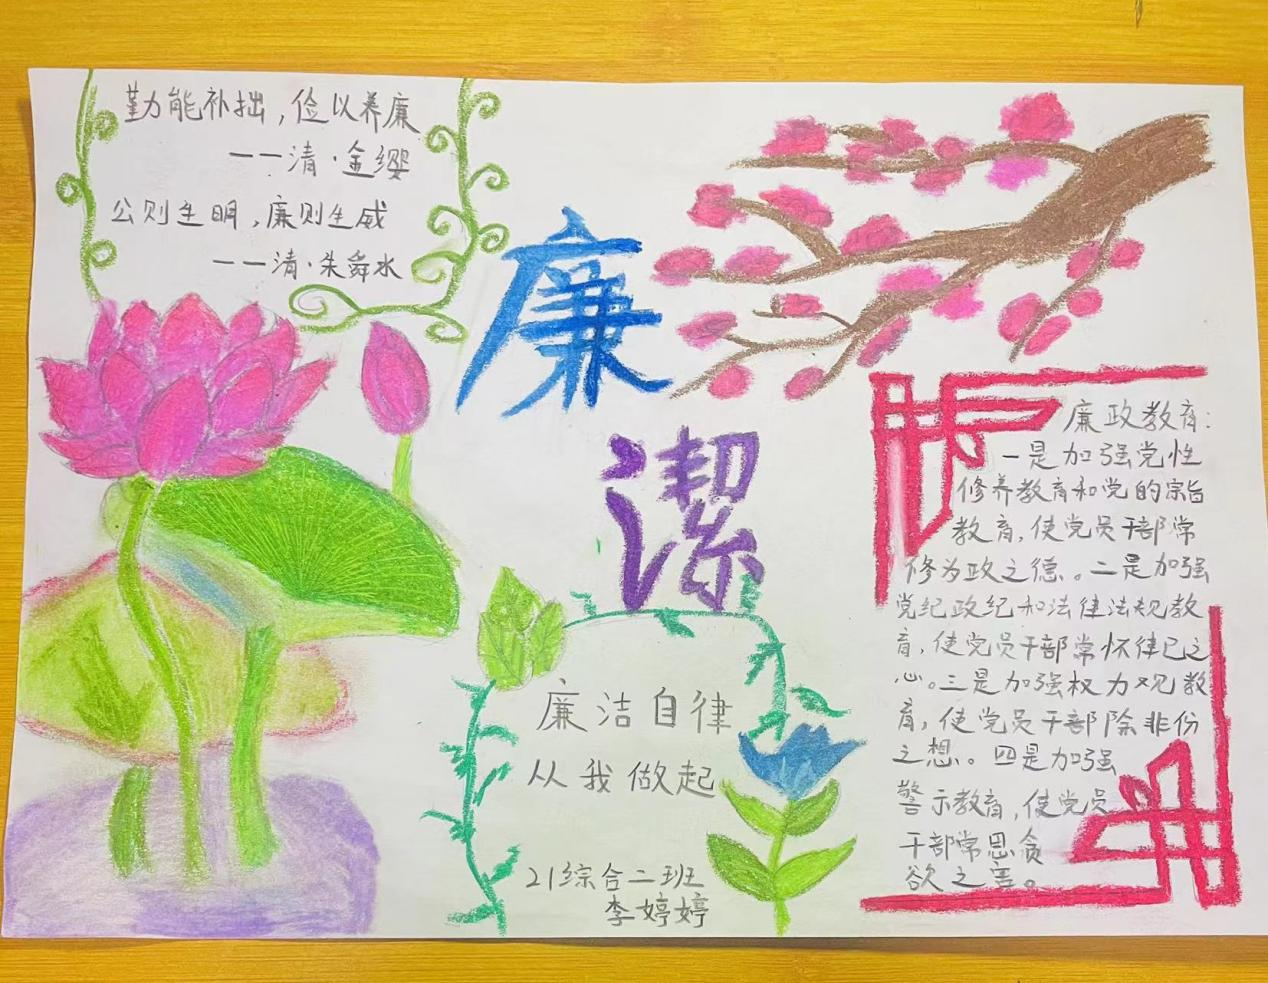 勤能补拙，俭以养廉
——清·金缨
公则生明，廉则生威
——清·朱舜水
廉
潔
廉政教育：
一是加强党性
修养教育和党的宗旨
教育，使党员干部常
修为政之德。二是加强
党纪政纪和法律法规教
育，使党员干部常怀律己之
心。三是加强权力观教
育，使党员干部除非份
之想。四是加强
警示教育，使党员
干部常思贪
欲之害。
廉洁自律
从我做起
21综合二班
李婷婷